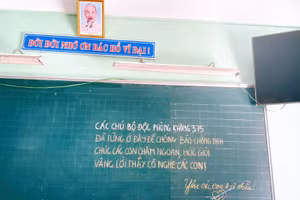 ĐỜI ĐỜI NHỚ ƠN BÁC HỒ VĨ ĐẠI !
CÁC CHÚ BỘ ĐỘI PHÒNG KHÔNG 375
ĐÃ TỪNG Ở ĐÂY ĐỂ CHỐNG BÃO CHỐNG DỊCH
CHÚC CÁC CON CHĂM NGOAN, HỌC GIỎI
VÂNG LỜI THẦY CÔ NGHE CÁC CON !
Yêu các con rất nhiều !